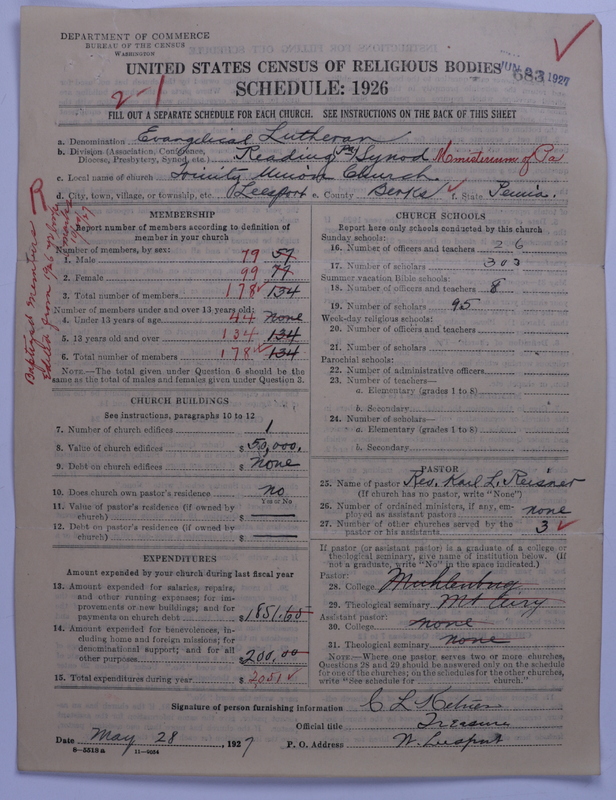 DEPARTMENT OF COMMERCE
BUREAU OF THE CENSUS
WASHINGTON
UNITED STATES CENSUS OF RELIGIOUS BODIES
JUN 1927
683
SCHEDULE: 1926
2-1
FILL OUT A SEPARATE SCHEDULE FOR EACH CHURCH. SEE INSTRUCTIONS ON THE BACK OF THIS SHEET
a. Denomination Evangelical Lutheran
b. Division (Association, Conference, Diocese, Presbytery, Synod, etc.) Reading Pa Synod Ministerium of Pa
c. Local name of church Trinity Union Church
d. City, town, village, or township, etc. Leesport e. County Berks f. State Penna.
Baptized members
MEMBERSHIP
Report number of members according to definition of
member in your church
Number of members, by sex:
1. Male 79 57
2. Female 99 77
3. Total number of members 178 134
Number of members under and over 13 years old:
4. Under 13 years of age 44 none
5. 13 years old and over 134 134
6. Total number of members 178 134
NOTE.—The total given under Question 6 should be
the same as the total of males and females given under Question 3.
CHURCH BUILDINGS
See instructions, paragraphs 10 to 12
7. Number of church edifices 1
8. Value of church edifices $ 50,000.
9. Debt on church edifices $ none
10. Does church own pastor's residence no
Yes or No
11. Value of pastor's residence (if owned by
church) $
12. Debt on pastor's residence (if owned by
church) $
EXPENDITURES
Amount expended by your church during last fiscal year
13. Amount expended for salaries, repairs,
and other running expenses; for im-
provements or new buildings; and for
payments on church debt $ 1851.60
14. Amount expended for benevolences, in-
cluding home and foreign missions; for
denominational support; and for all
other purposes $ 200.00
15. Total expenditures during year $ 2051
CHURCH SCHOOLS
Report here only schools conducted by this church
Sunday schools:
16. Number of officers and teachers 26
17. Number of scholars 303
Summer vacation Bible schools:
18. Number of officers and teachers 8
19. Number of scholars 95
Week-day religious schools:
20. Number of officers and teachers
21. Number of scholars
Parochial schools:
22. Number of administrative officers
23. Number of teachers—
a. Elementary (grades 1 to 8)
b. Secondary
24. Number of scholars—
a. Elementary (grades 1 to 8)
b. Secondary
PASTOR
25. Name of pastor Rev. Karl L. Reisner
(If church has no pastor, write "None")
26. Number of ordained ministers, if any, em-
ployed as assistant pastors none
27. Number of other churches served by the
pastor or his assistants 3
If pastor (or assistant pastor) is a graduate of a college or
theological seminary, give name of institution below. (If
not a graduate, write "No" in the space indicated.)
Pastor:
28. College Muhlenburg
29. Theological seminary Mt Airy
Assistant pastor:
30. College none
31. Theological seminary none
NOTE.—Where one pastor serves two or more churches,
Questions 28 and 29 should be answered only on the schedule
for one of the churches; on the schedules for the other churches,
write "See schedule for church."
Signature of person furnishing information C L
Official title Treasurer
Date May 28, 1927 P. O. Address W. Leesport
8—5513 a 11—9054